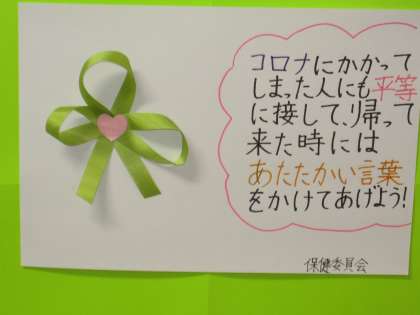 コロナにかかって
しまった人にも平等
に接して、帰って
来た時には
あたたかい言葉
をかけてあげよう!
保健委員会